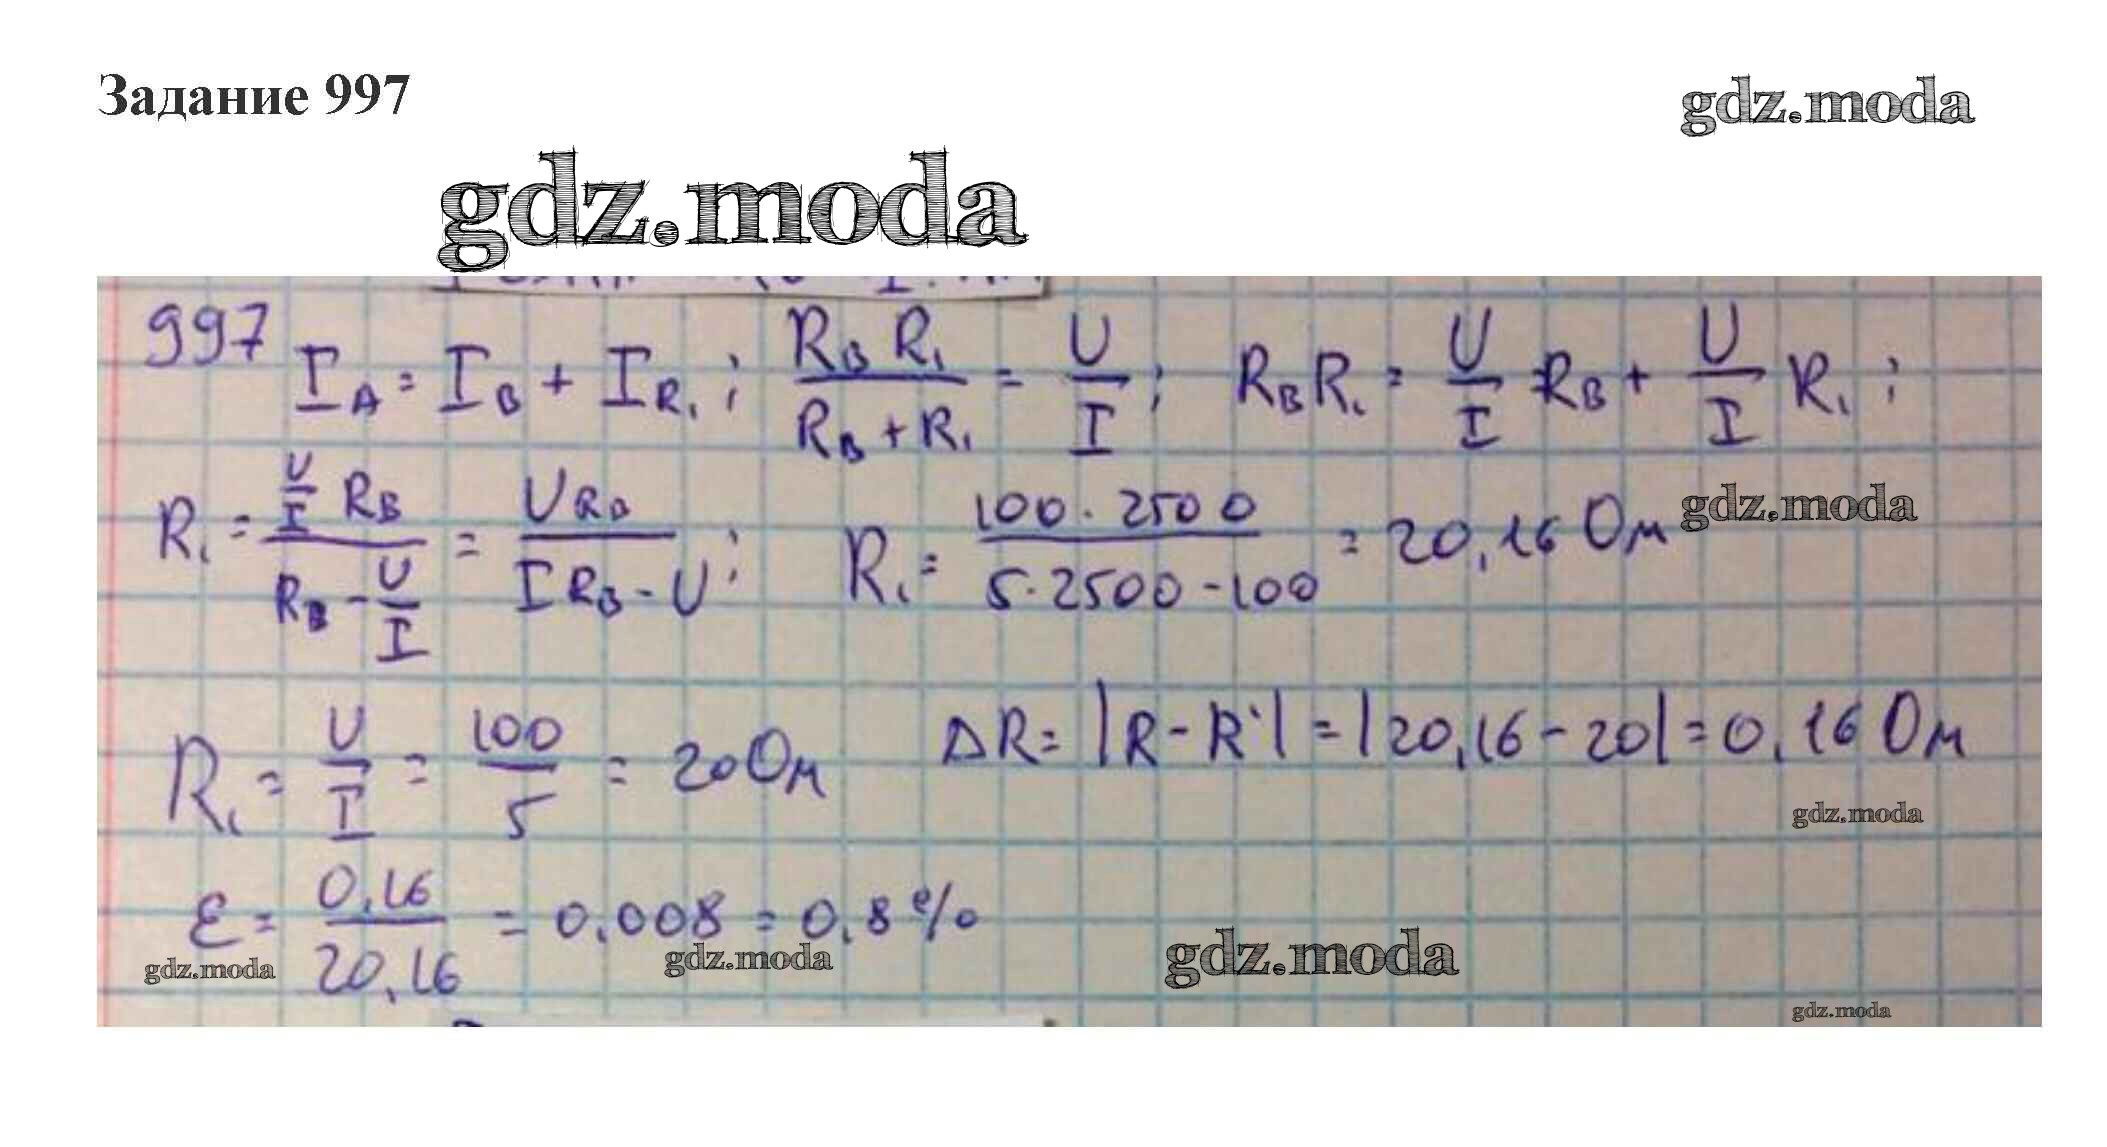 Задание 997
gdz.moda
gdz.moda
997 I_A = I_B + I_R₁ ; R_B R₁ / (R_B + R₁) = U/I ; R_B R₁ = U/I R_B + U/I R₁ ;
R₁ = (U/I R_B) / (R_B - U/I) = U R_B / (I R_B - U) ; R₁ = 100 · 2500 / (5 · 2500 - 100) = 20,16 Ом
gdz.moda
R₁ = U/I = 100/5 = 20 Ом ΔR = |R - R'| = |20,16 - 20| = 0,16 Ом
gdz.moda
ε = 0,16 / 20,16 = 0,008 = 0,8 %
gdz.moda
gdz.moda
gdz.moda
gdz.moda